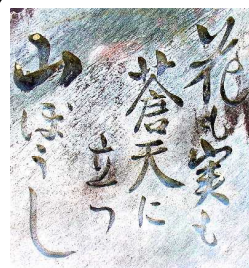 花も実も
蒼天に
立つ
山ぼうし